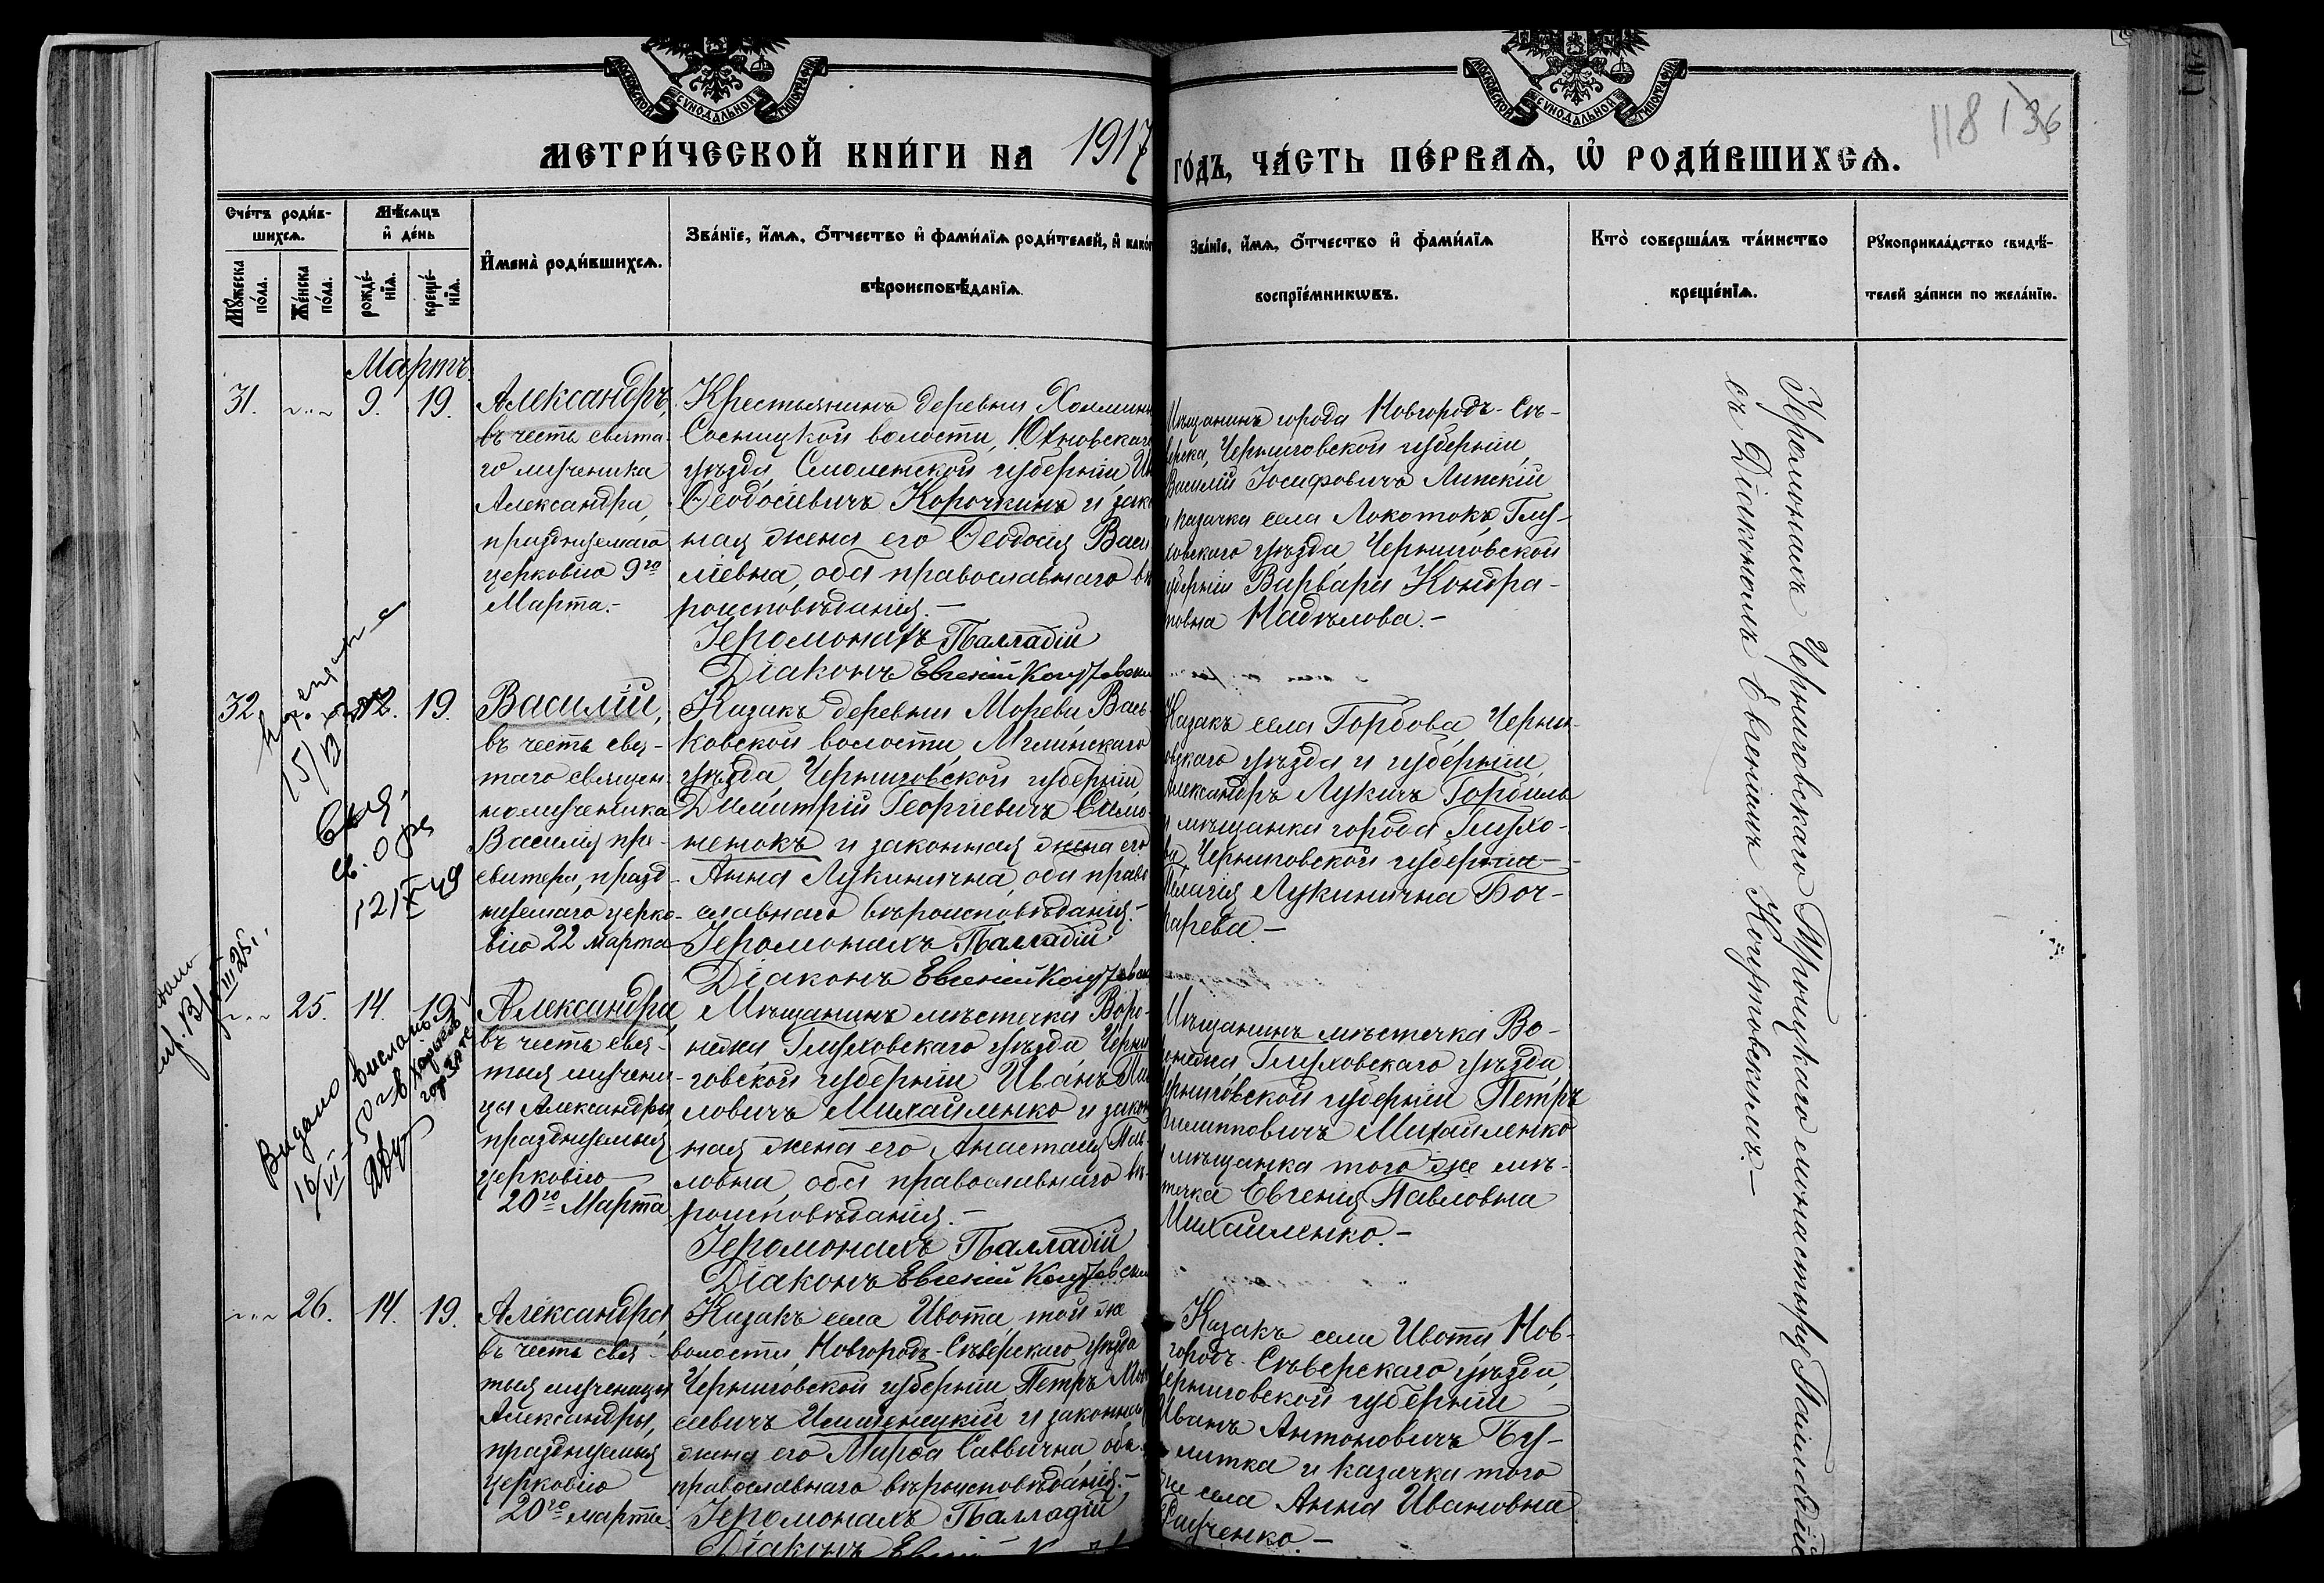 МОСКОВСКОЙ СѴНОДАЛЬНОЙ ТИПОГРАФІИ
МОСКОВСКОЙ СѴНОДАЛЬНОЙ ТИПОГРАФІИ
118 136
МЕТРИ́ЧЕСКОЙ КНИ́ГИ НА 1917 ГО́ДЪ, ЧА́СТЬ ПЕ́РВАѦ, Ѡ҆ РОДИ́ВШИХСѦ.
Сче́тъ роди́в-
шихсѧ.
Мꙋ́жеска по́ла.
Же́нска по́ла.
Мѣ́сѧцъ и҆ де́нь
рожде́-нїѧ.
креще́-нїѧ.
И҆мена̀ роди́вшихсѧ.
Зва́нїе, и҆́мѧ, ѻ҆́тчество и҆ фами́лїѧ роди́телей, и҆ како́г
вѣроисповѣ́данїѧ.
Зва́нїе, и҆́мѧ, ѻ҆́тчество и҆ фами́лїѧ
воспрїе́мникѡвъ.
Кто̀ соверша́лъ та́инство
креще́нїѧ.
Рꙋкоприкла́дство свидѣ́-
телей за́писи по жела́нїю.
Мартъ.
31. 9. 19.
Александръ,
въ честь свята-
го мученика
Александра,
празднуемаго
церковію 9го
Марта.-
Крестьянинъ деревни Холмин
Сосницкой волости, Юхновскаго
уѣзда, Смоленской губерніи Ив
Ѳеодосіевичъ Корочкинъ и зако
ная жена его Ѳеодосія Васи
ліевна, оба православнаго вѣ
роисповѣданія.-
Іеромонахъ Палладій
Діаконъ Евгеній
Мѣщанинъ города Новгородъ-Сѣ-
верска, Черниговской губерніи,
Василій Іосифовичъ Липскій
и казачка села Локотокъ, Глу-
ховскаго уѣзда, Черниговской
губерніи Варвара Кондра-
товна Надѣлова.-
32. 12. 19.
Василій,
въ честь свя-
таго священ-
номученика
Василія пре-
свитера, празд-
нуемаго церко-
вію 22 марта
Казакъ деревни Морева, Вась-
ковской волости Мглинскаго
уѣзда, Черниговской губерніи,
Димитрій Георгіевичъ Симо-
ненокъ и законная жена его
Анна Лукинична, оба право-
славнаго вѣроисповѣданія.-
Іеромонахъ Палладій
Діаконъ Евгеній
Казакъ села Горбова, Черни-
говскаго уѣзда и губерніи
Александръ Лукичъ Горбиль
и мѣщанка города Глухо-
ва, Черниговской губерніи
Пелагія Лукинична Боч-
карева.-
25. 14. 19.
Александра,
въ честь свя-
тыя мучени-
цы Александры,
празднуемыя
церковію
20го Марта
Мѣщанинъ мѣстечка Воро-
нежа Глуховскаго уѣзда, Черни
говской губерніи Иванъ
ловичъ Михайленко и закон
ная жена его Анастасія Пав-
ловна, оба православнаго вѣ-
роисповѣданія.-
Іеромонахъ Палладій
Діаконъ Евгеній
Мѣщанинъ мѣстечка Во-
ронежа, Глуховскаго уѣзда
Черниговской губерніи Петръ
Филипповичъ Михайленко
и мѣщанка того же мѣ-
стечка Евгенія Павловна
Михайленко.-
Видано
16/VI
26. 14. 19.
Александра,
въ честь свя-
тыя мученицы
Александры,
празднуемыя
церковію
20го марта.
Казакъ села Ивота той же
волости, Новгородъ-Сѣверскаго уѣзда
Черниговской губерніи Петръ
сіевичъ Имшенецкій и законная
жена его Марѳа Саввична, оба
православнаго вѣроисповѣданія.-
Іеромонахъ Палладій
Діаконъ
Казакъ села Ивота, Нов-
городъ-Сѣверскаго уѣзда,
Черниговской губерніи
Иванъ Антоновичъ
и казачка того
же села Анна Ивановна
Іеромонахъ Черниговскаго Троицкаго монастыря Палладій
съ Діакономъ Евгеніемъ Кочутовскимъ.-